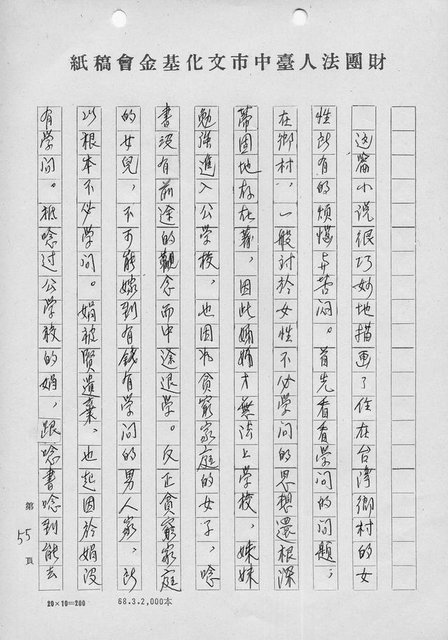 財團法人臺中市文化基金會稿紙
這篇小说很巧妙地描画了住在台湾鄉村的女
性所有的煩惱与苦闷。首先看看学问的问题,
在鄉村,一般討於女性不必学问的思想還根深
蒂固地存在著,因此婻婻才無法上学校,妹妹
勉强進入公学校,也因為貧窮家庭的女子,唸
書沒有前途的觀念而中途退学。反正貧窮家庭
的女兒,不可能嫁到有錢有学问的男人家,所
以根本不必学问。娟被賢遺棄,也起因於娟沒
有学问。祗唸过公学校的娟,跟唸書唸到能去
第55頁
20×10=200
68.3.2,000本